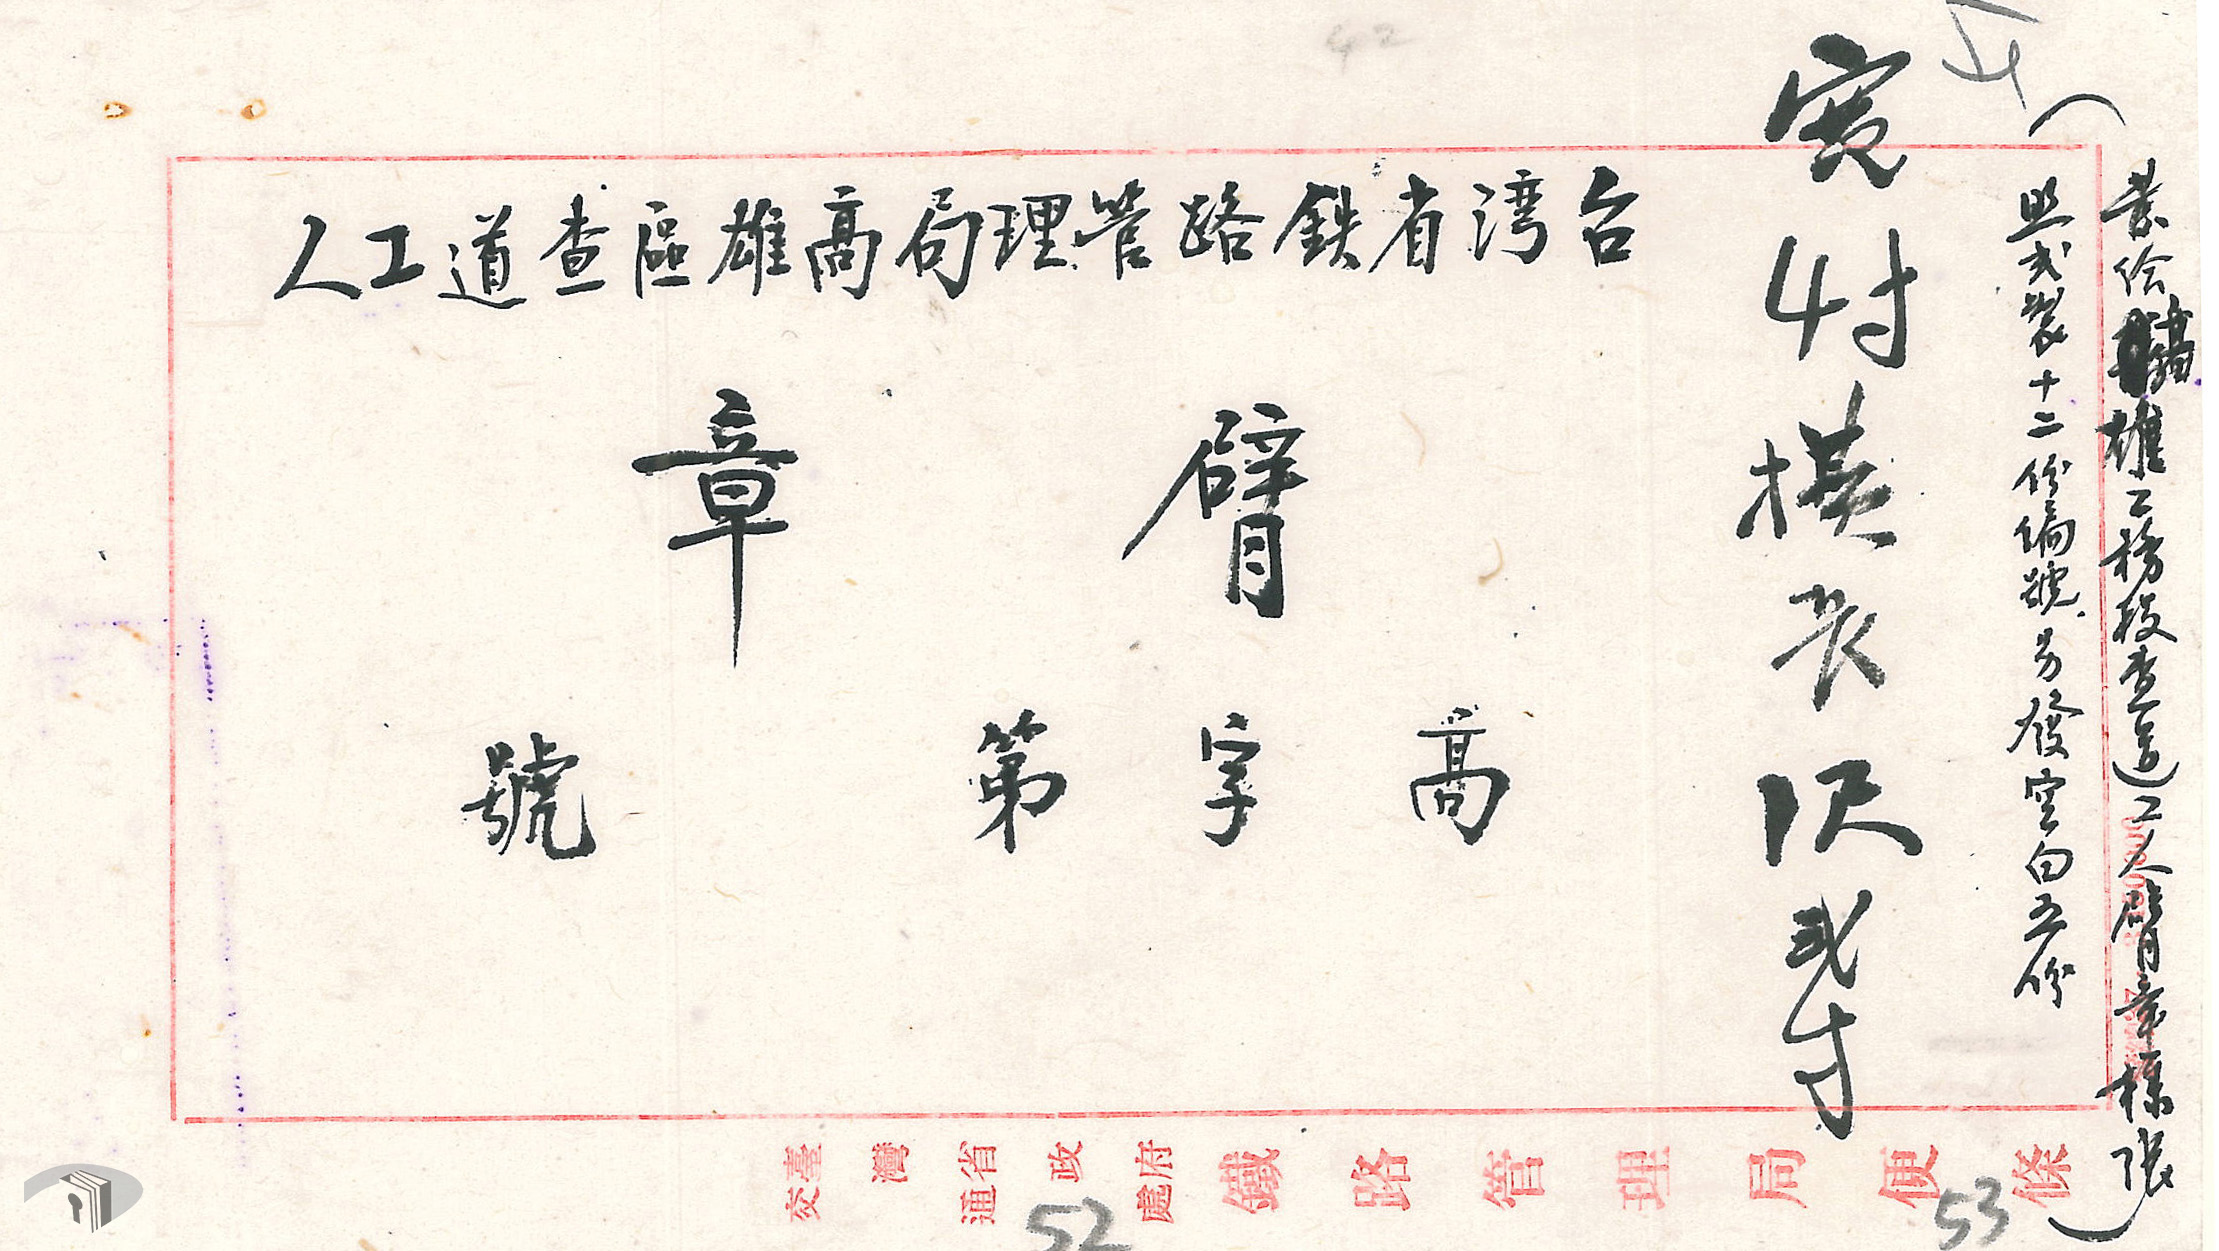 (茲給高雄工務段查道工人臂章樣張)
照式製十二份編號.另發空白五份
寬4寸橫長1尺弍寸
台湾省鉄路管理局高雄區查道工人
臂章
高字第 號
臺灣省政府交通處鐵路管理局便條
42
52
53